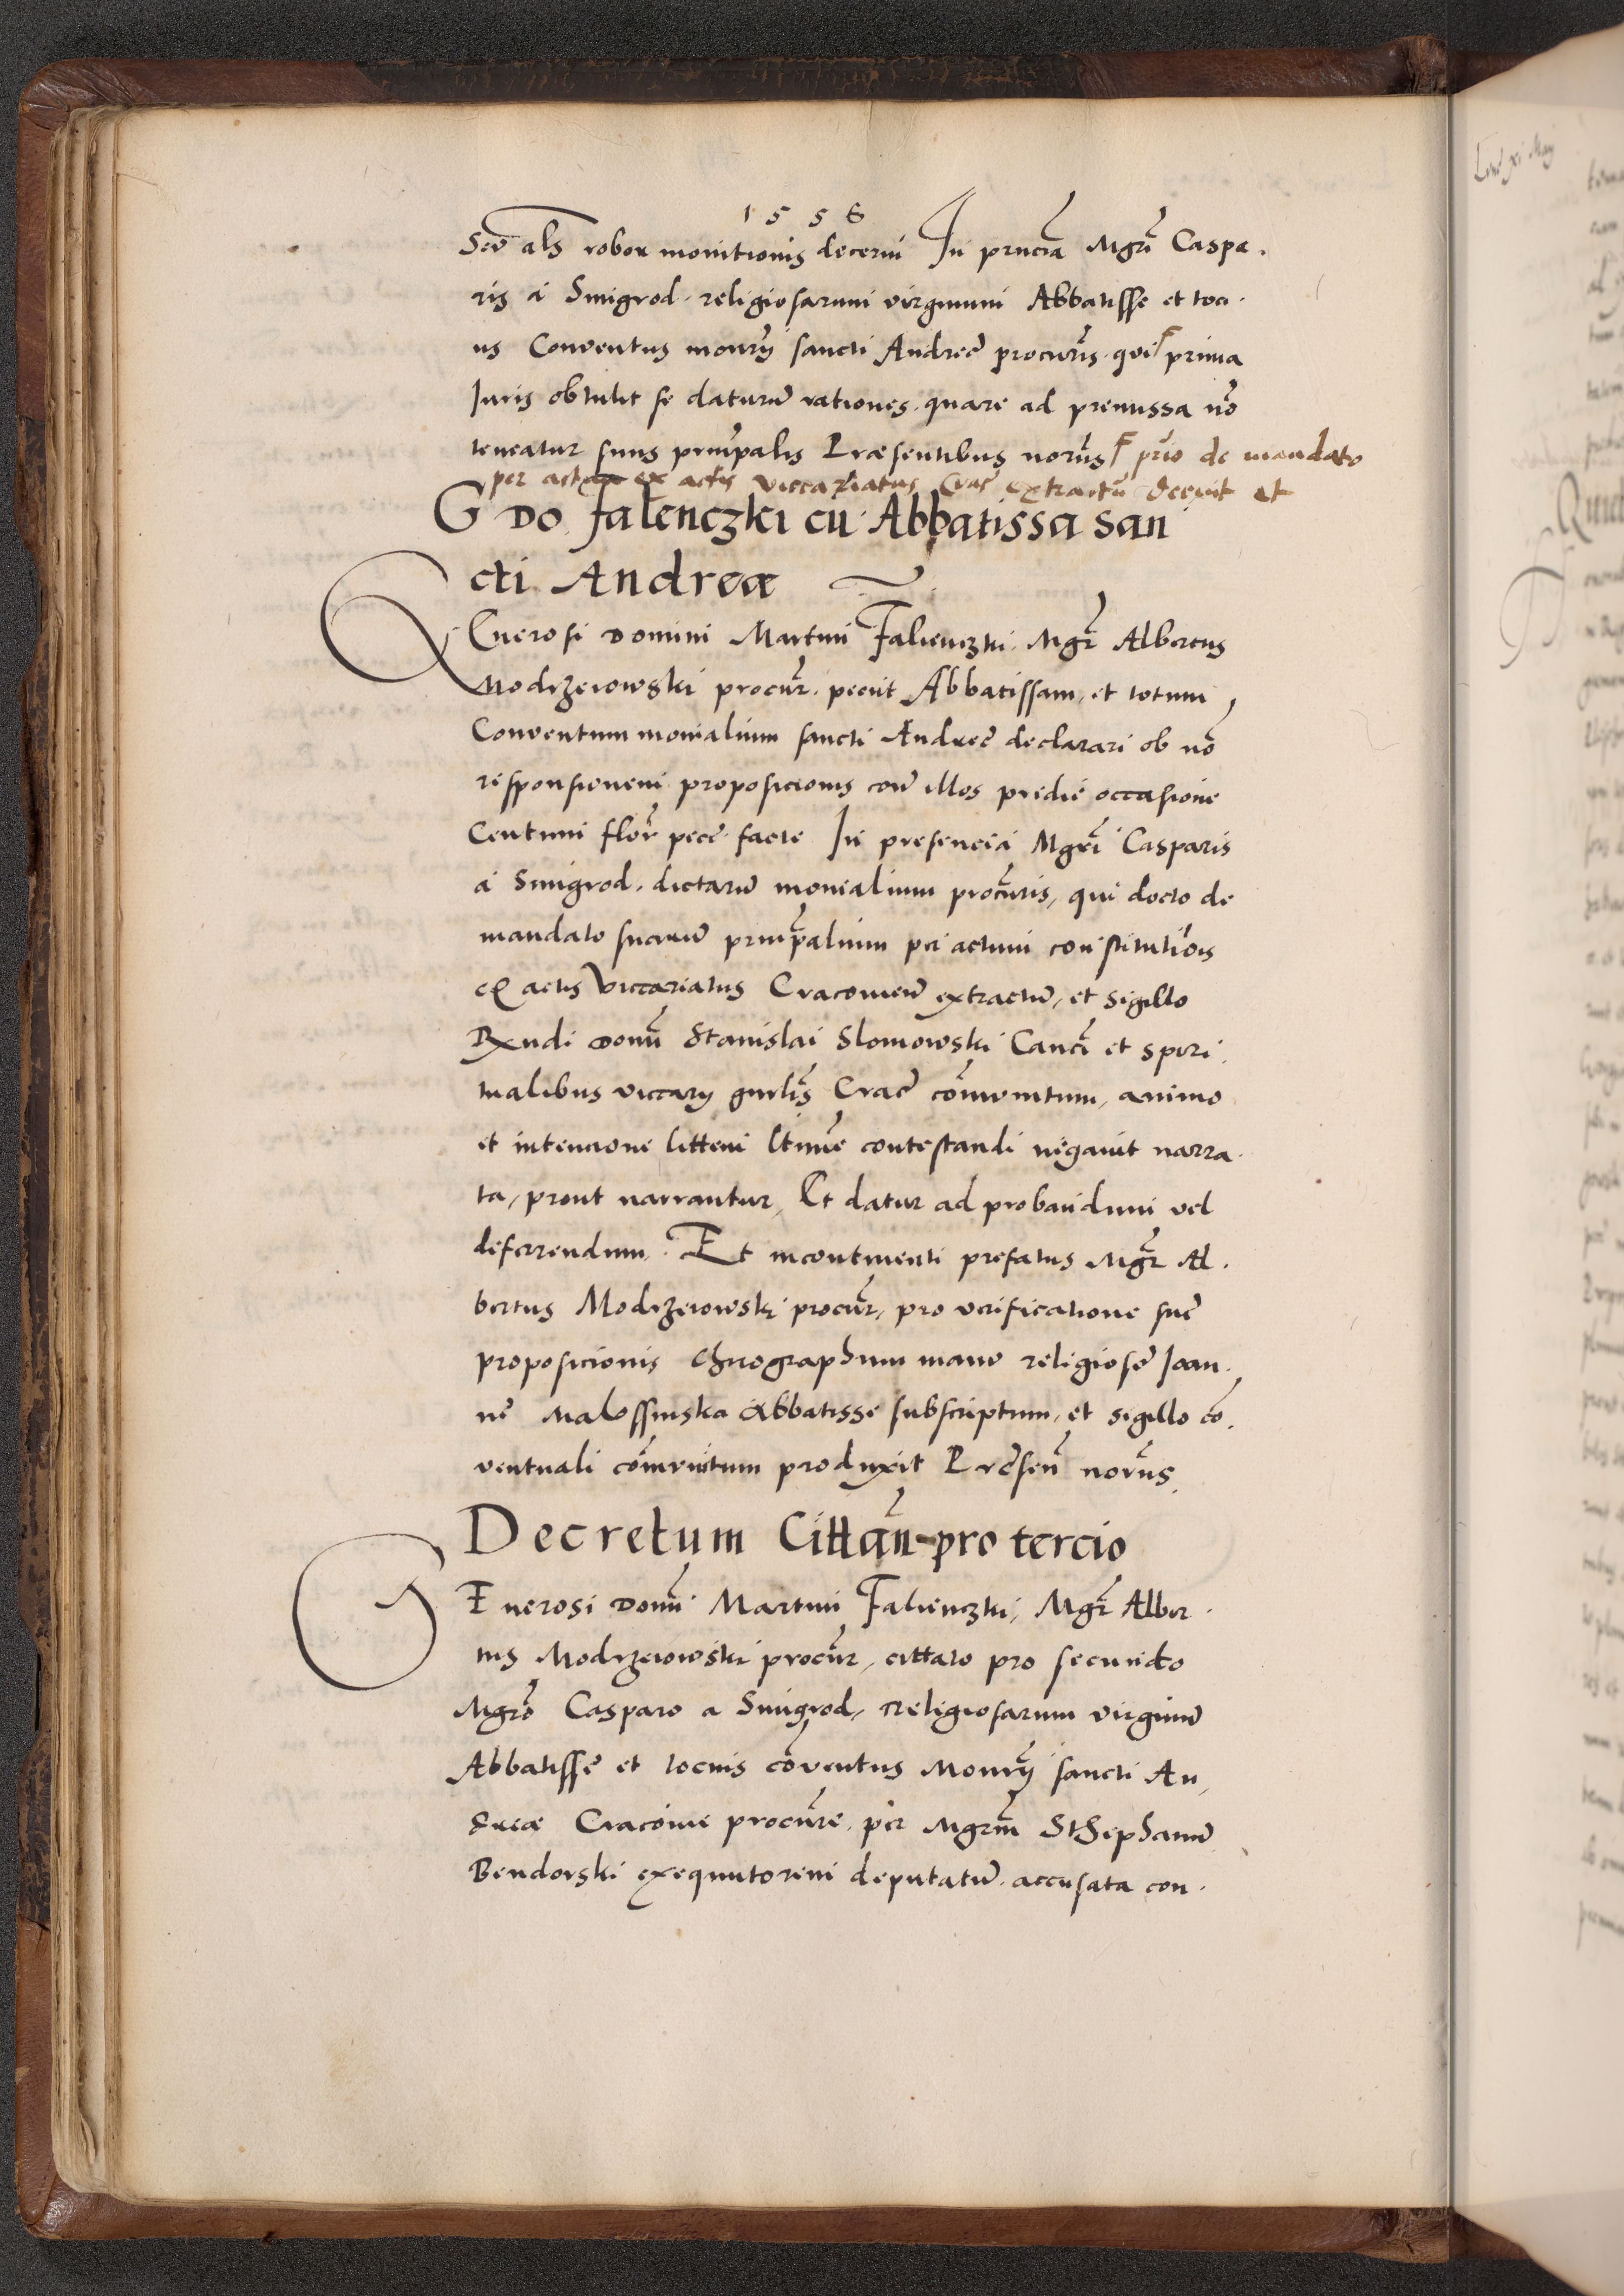 1556
Seu als robor monitionis decerni In pnciã Mgri Caspa.
ris à Smigrod religiosarum virginum Abbatisse et toci.
us Conventus monrÿ sancti Andreę procurĩs qui prima
Juris obtulit se daturũ rationes quare ad premissa nõ
teneatur suus prinpalis Præsentibus norijs prĩo de mandato
per actum ex actis viccariatus Crac̃ extractũ decuit et
G DO falenczki cũ Abbatissa san
cti Andreæ
Generosi Domini Martini Falienczki Mgr̃ Albertus
Modrzeiowski procur̃ peciit Abbatissam et totum
Conventum monialium sancti Andreę declarari ob nõ
responsionem proposicionis con̾ illos pridie occasione
Centum flor̃ pecc̃ facte In presencia Mgri Casparis
à Smigrod dictarũ monialium procur̃is, qui docto de
mandato suarũ prinpalium per actum constitutiõis
ex actis Viccariatus Cracovieñ extractũ, et sigillo
Rxndi domĩ Stanislai Slomowski Canci et spiri
tualibus viccarÿ gnrlis̃ Crac̃ cõmunitum, animo
et intencione littem ltime contestandi negavit narra
ta, prout narrantur, Et datur ad probandum vel
deferrendum. Et incontinenti prefatus Mgr̃ Al.
bertus Modrzeiowski procur̃, pro verificatione suę
proposicionis Chirographum manu religiosę Joan.
nę Malossinska Abbatisse subscriptum, et sigillo cõ.
ventuali cõmunitum produxit Pręseñ norijs
Decretum Cittañ pro tercio
GEnerosi Domĩ Martini Falienczki, Mgr̃ Alber.
tus Modrzeiowski procur̃, cittato pro secundo
Mgrõ Casparo a Smigrod, religiosarum virginũ
Abbatissę et tocius cõventus Monrÿ sancti An,
dreæ Cracovie procur̃e per Mgrm̃ SthephanũBendorski exequutorem deputatũ accusata con.